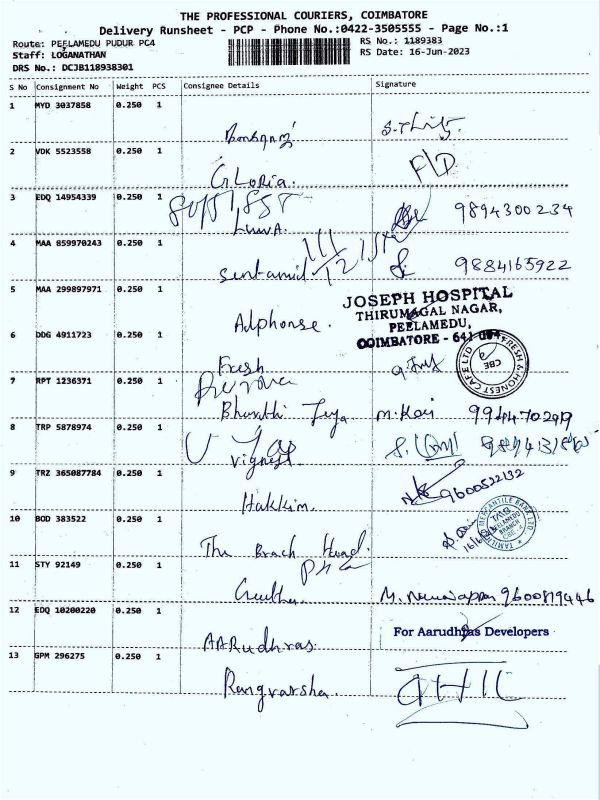 THE PROFESSIONAL COURIERS, COIMBATORE
Delivery Runsheet - PCP - Phone No.:0422-3505555 - Page No.:1
Route: PEELAMEDU PUDUR PC4
RS No.: 1189383
Staff: LOGANATHAN
RS Date: 16-Jun-2023
DRS No.: DCJB118938301
S No Consignment No Weight PCS Consignee Details Signature
1 MYD 3037858 0.250 1
2 VDK 5523558 0.250 1
F/D
Gloria.
3 EDQ 14954339 0.250 1
9894300234
4 MAA 859970243 0.250 1
9884165922
5 MAA 299897971 0.250 1
JOSEPH HOSPITAL
THIRUMAGAL NAGAR,
PEELAMEDU,
COIMBATORE - 641 004
Alphonse.
6 DDG 4911723 0.250 1
Fresh
FRESH & HONEST CAFE LTD
CBE
7 RPT 1236371 0.250 1
Bharathi
8 TRP 5878974 0.250 1
Vignesh
9 TRZ 365087784 0.250 1
9600522132
Hakkim.
10 BOD 383522 0.250 1
TAMILNAD MERCANTILE BANK LTD
TMB
PEELAMEDU
BRANCH
The Brach Head.
11 STY 92149 0.250 1
9600819446
12 EDQ 10200220 0.250 1
For Aarudhras Developers
AARudhras
13 GPM 296275 0.250 1
Rangvarsha.